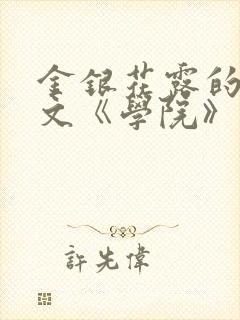 金銀花露的
文《學院》
許先偉